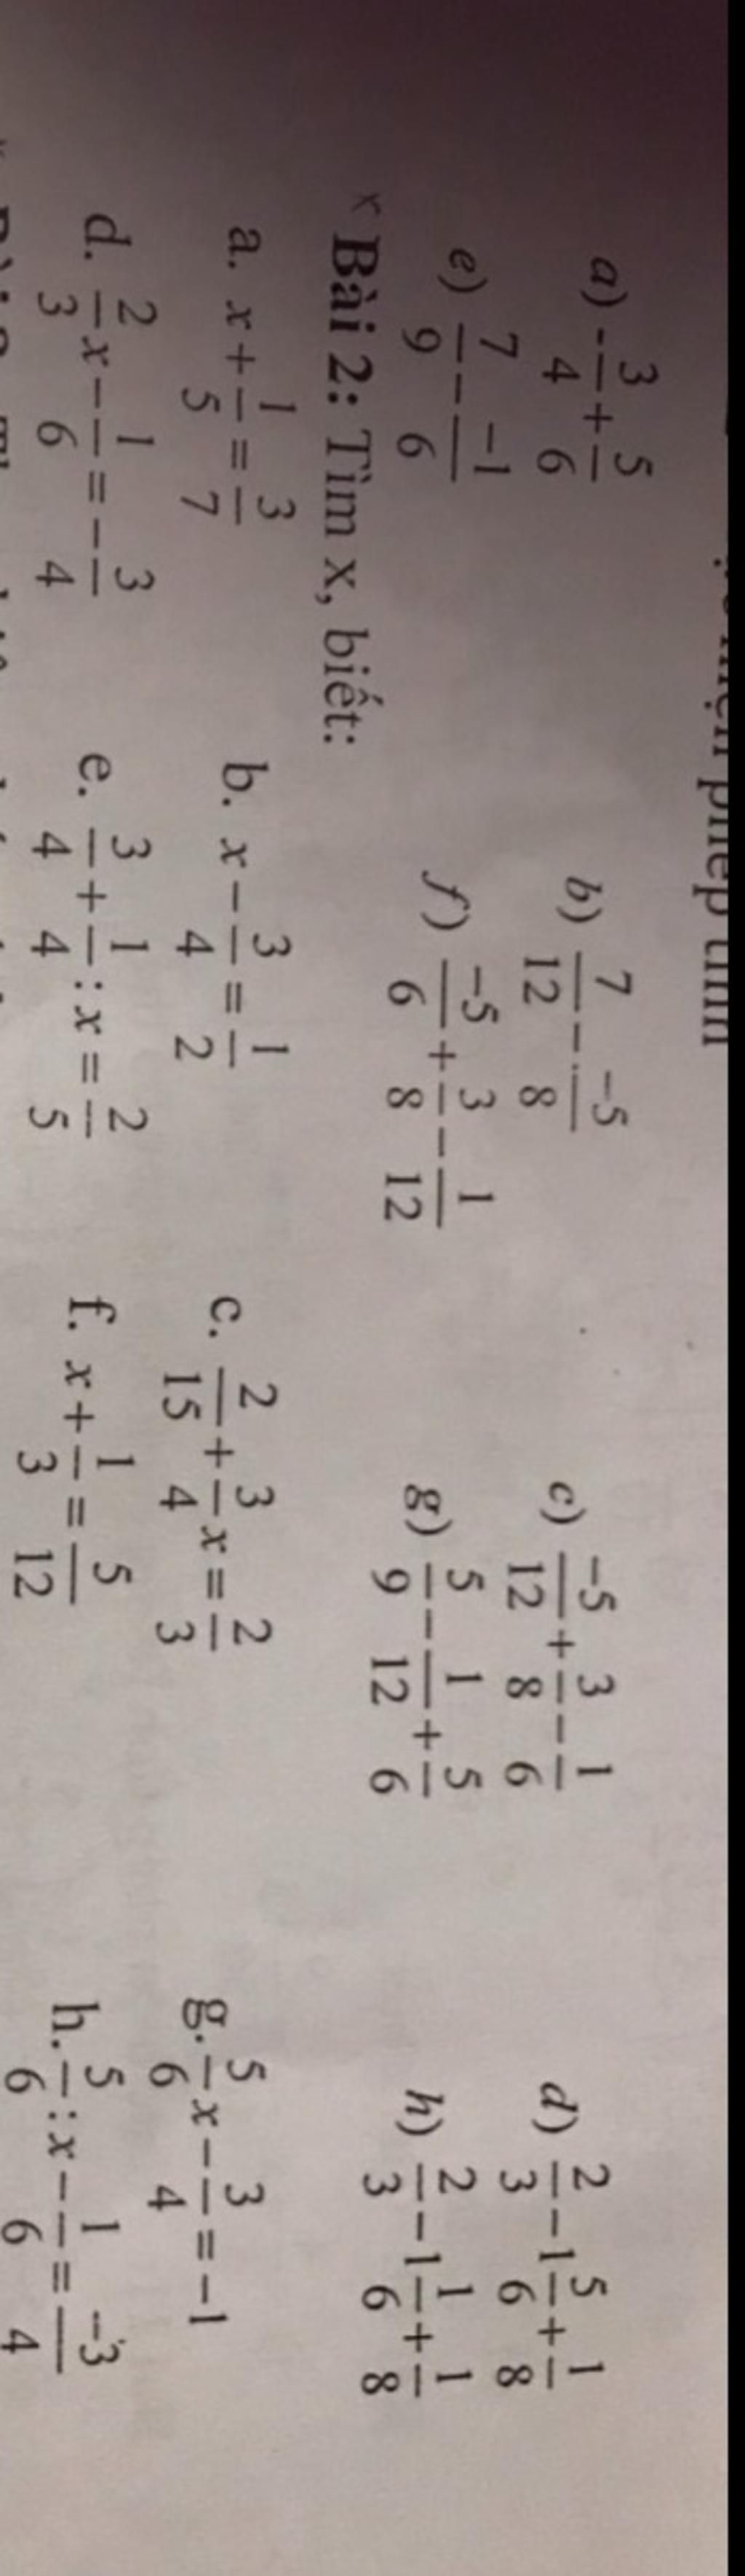 phép tính
a) -3/4 + 5/6 b) 7/12 - -5/8 c) -5/12 + 3/8 - 1/6 d) 2/3 - 1 5/6 + 1/8
e) 7/9 - -1/6 f) -5/6 + 3/8 - 1/12 g) 5/9 - 1/12 + 5/6 h) 2/3 - 1 1/6 + 1/8
Bài 2: Tìm x, biết:
a. x + 1/5 = 3/7 b. x - 3/4 = 1/2 c. 2/15 + 3/4 x = 2/3 g. 5/6 x - 3/4 = -1
d. 2/3 x - 1/6 = - 3/4 e. 3/4 + 1/4 : x = 2/5 f. x + 1/3 = 5/12 h. 5/6 : x - 1/6 = -3/4